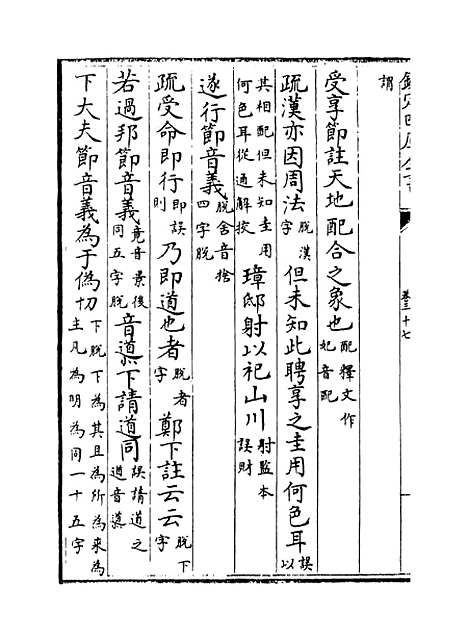 欽定四庫全書
卷三十七
謂
受享節註天地配合之象也配釋文作妃音配
疏漢亦因周法脫漢字但未知此聘享之圭用何色耳誤以
其相配但未知圭用何色耳從通解挍璋邸射以祀山川射監本誤財
遂行節音義脫舍音捨四字
疏受命即行即誤則乃即道也者脫者字鄭下註云云脫下字
若過邦節音義竟音景後同五字脫音導下請道同誤請道之道音導
下大夫節音義為于偽切下脫下為其且為所為來為主凡為明為同一十五字